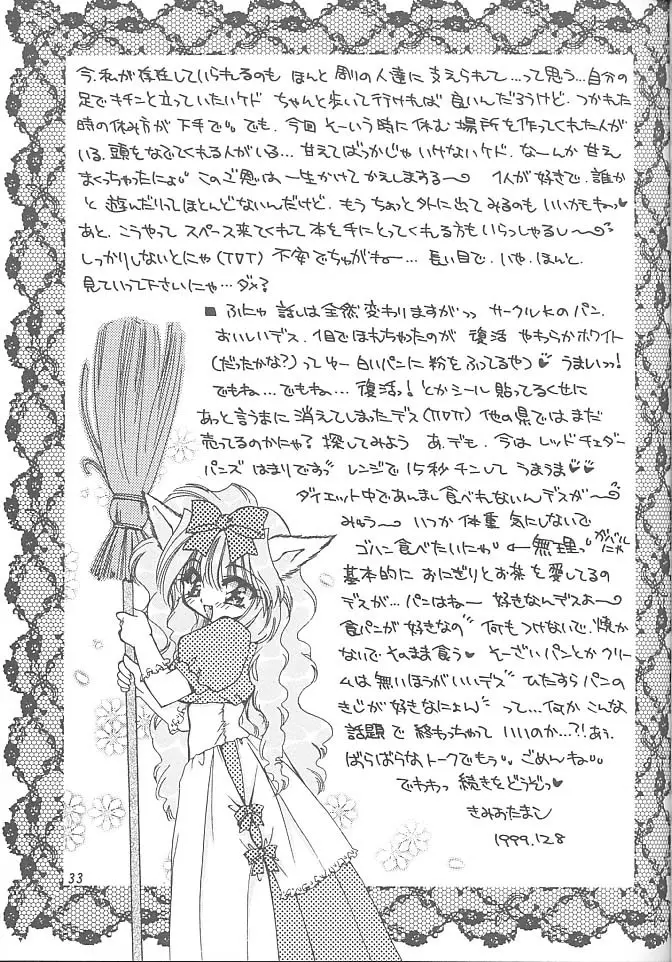 今、私が存在していられるのも ほんと 周りの人達に 支えられて…って思う…自分の
足でキチンと立っていたいケド ちゃんと歩いて行ければ 良いんだろうけど、つかれた
時の休み方が 下手で。でも、今回 そーいう時に 休む 場所を作ってくれた人が
いる、頭をなでてくれる人がいる… 甘えてばっかじゃ いけないケド、なーんか 甘え
まくっちゃったにょ。このご恩は 一生かけて かえしまする〜 1人が好きで、誰か
と 遊んだりって ほとんどないんだけど、もう ちょっと外に出てみるのも いいかもねっ♥
あと、こうやって スペース来てくれて 本を手にとってくれる方も いらっしゃるし〜
しっかりしないとにゃ(TДT) 不安でちゅがねー… 長い目で、いや、ほんと、
見ていって下さいにゃ…ダメ?
■ ふにゃ 話しは全然 変わりますがっっ サークルKのパン、
おいしいデス、1目でほれちゃったのが 復活 やわらかホワイト
(だったかな?)ってゆー 白いパンに 粉をふってるやつ♥ うまいっっ!
でもね…でもね… 復活っ!とかシール 貼ってるくせに
あっと言うまに 消えてしまったデス(TДT) 他の県では、まだ
売ってるのかにゃ?探してみよう あ、でも、今は レッドチェダー
パンズ はまりですっ レンジで 15秒チンして うまうま♥♥
ダイエット中であんまし食べれないんデスが〜
みゅう〜 いつか 体重 気にしないで
ゴハン食べたいにゃ ←無理っ ガバルにゃ
基本的に おにぎりとお茶を愛してるの
デスが…パンはねー 好きなんデスよー
食パンが好きなの 何もつけないで、焼か
ないで そのまま食う そーざいパンとか クリー
ムは無いほうがいいデス ひたすらパンの
きじが好きなにょん って…何か こんな
話題で 終わっちゃって いいのか…?!あぅ
ばらばらな、トークでもう。ごめんね。
でわわっ 続きをどうぞっ♥
きみおたまこ
1999.12.8
33